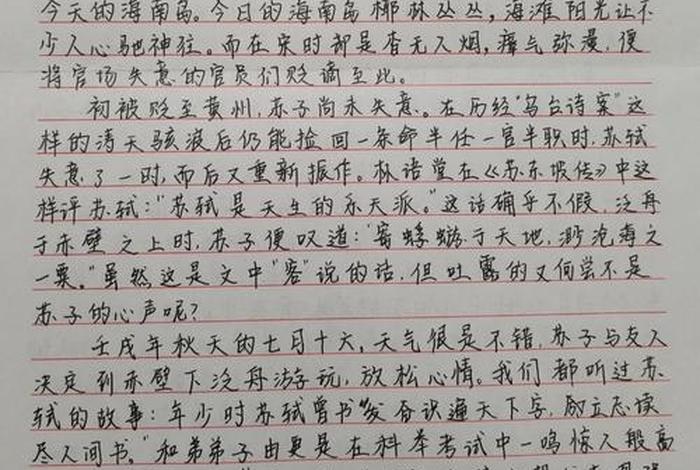 今天的海南岛。今日的海南岛椰林丛丛，海滩阳光让不
少人心驰神往。而在宋时却是杳无人烟，瘴气弥漫，便
将官场失意的官员们贬谪至此。
初被贬至黄州，苏子尚未失意。在历经“乌台诗案”这
样的涛天骇浪后仍能捡回一条命半任一官半职时，苏轼
失意了一时，而后又重新振作。林语堂在《苏东坡传》中这
样评苏轼：“苏轼是天生的乐天派。”这话确乎不假，泛舟
于赤壁之上时，苏子便叹道：“寄蜉蝣于天地，渺沧海之
一粟。”虽然这是文中“客”说的话，但吐露的又何尝不是
苏子的心声呢？
壬戌年秋天的七月十六，天气很是不错，苏子与友人
决定到赤壁下泛舟游玩，放松心情。我们都听过苏
轼的故事：年少时苏轼曾书“发奋识遍天下字，励立志读
尽人间书。”和弟弟子由更是在科举考试中一鸣惊人般高